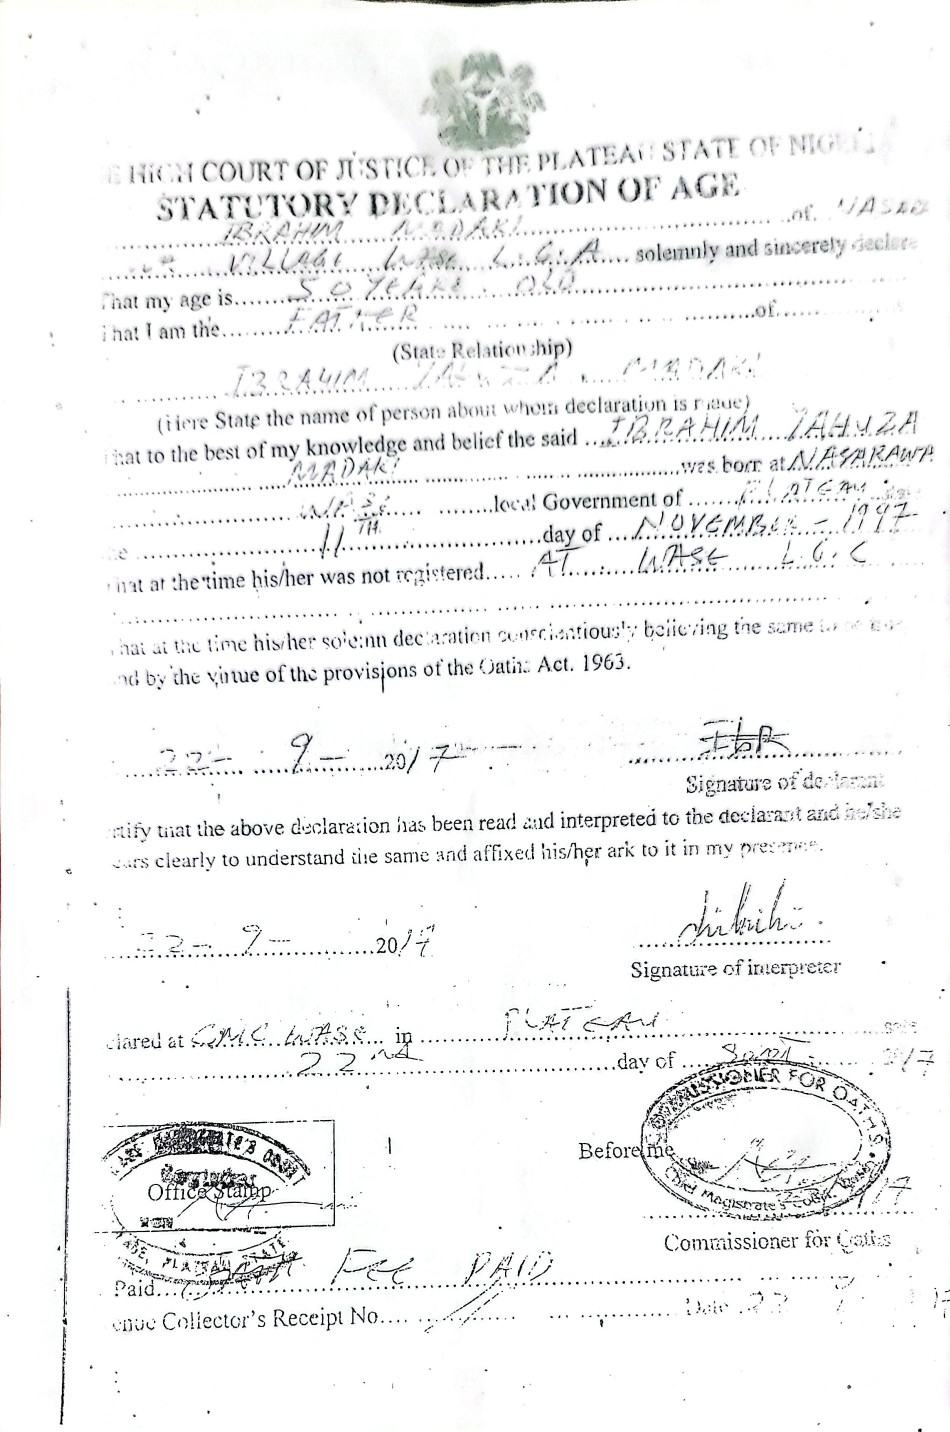 E HIGH COURT OF JUSTICE OF THE PLATEAU STATE OF NIGERIA
STATUTORY DECLARATION OF AGE
IBRAHIM MADAKI of NASAR
VILLAGE WASE L.G.A solemnly and sincerely declare
That my age is 50 YEARS OLD
That I am the FATHER of
(State Relationship)
IBRAHIM YAHUZA MADAKI
(Here State the name of person about whom declaration is made)
hat to the best of my knowledge and belief the said IBRAHIM YAHUZA
MADAKI was born at NASARAWA
WASE local Government of PLATEAU
11TH day of NOVEMBER - 1997
hat at the time his/her was not registered AT WASE L.G.C
hat at the time his/her solemn declaration conscientiously believing the same to be
nd by the virtue of the provisions of the Oaths Act. 1963.
22- 9- 2017
Signature of declarant
rtify that the above declaration has been read and interpreted to the declarant and he/she
ears clearly to understand the same and affixed his/her ark to it in my presence.
22- 9- 2017
Signature of interpreter
clared at CMC WASE in PLATEAU
22nd day of Sept 2017
COMMISSIONER FOR OATHS
Before me
Chief Magistrate's Court
Office Stamp
WASE, PLATEAU STATE
Commissioner for Oaths
Paid Fee PAID
enue Collector's Receipt No. Date 22